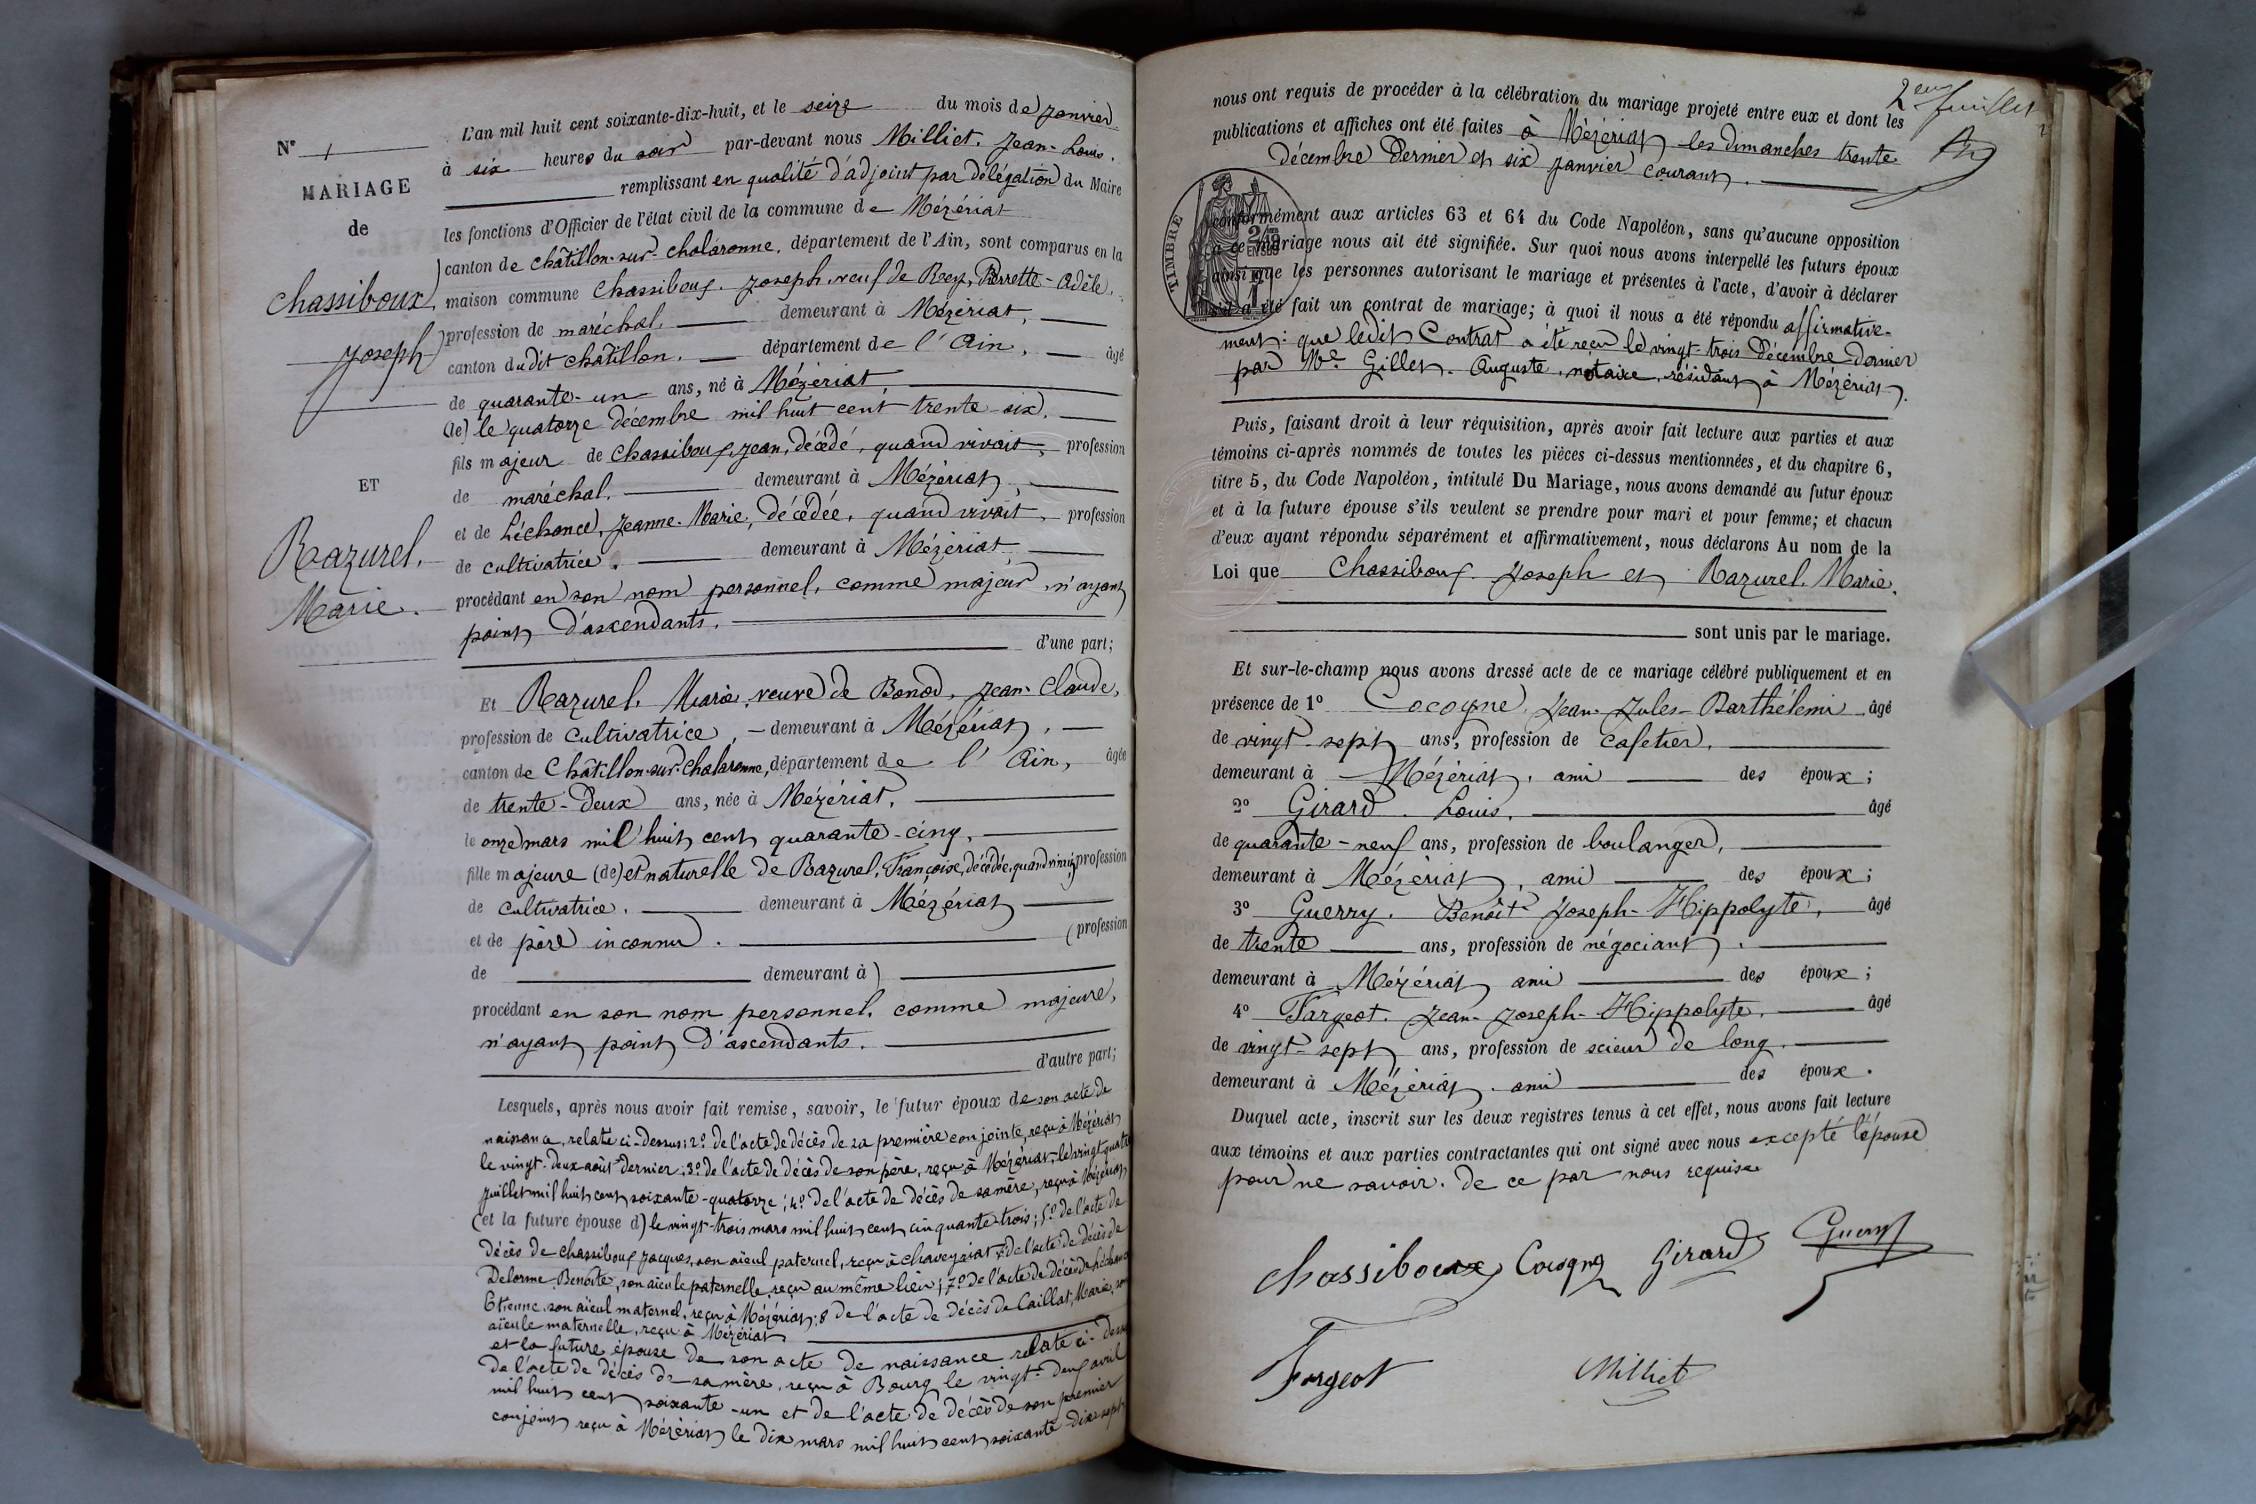 N° 1
MARIAGE
de
Chassiboux,
Joseph
ET
Razurel,
Marie.
L'an mil huit cent soixante-dix-huit, et le seize du mois de janvier
à six heures du soir par-devant nous Milliet, Jean-Louis.
remplissant en qualité d'adjoint par délégation du Maire
les fonctions d'Officier de l'état civil de la commune de Mézériat
canton de Châtillon-sur-Chalaronne, département de l'Ain, sont comparus en la
maison commune Chassiboux, Joseph, veuf de Perrette-Adèle,
profession de maréchal, demeurant à Mézériat,
canton dudit Châtillon, département de l'Ain, âgé
de quarante-un ans, né à Mézériat,
(le) le quatorze décembre mil huit cent trente-six,
fils majeur de Chassiboux, Jean, décédé, quand vivait, profession
de maréchal, demeurant à Mézériat,
et de Léchance, Jeanne-Marie, décédée, quand vivait, profession
de cultivatrice, demeurant à Mézériat
procédant en son nom personnel, comme majeur, n'ayant
point d'ascendants.
d'une part;
Et Razurel, Marie, veuve de Bonod, Jean-Claude,
profession de cultivatrice, demeurant à Mézériat,
canton de Châtillon-sur-Chalaronne, département de l'Ain, âgée
de trente-deux ans, née à Mézériat,
le onze mars mil huit cent quarante-cinq,
fille majeure (de) et naturelle de Razurel, Françoise, décédée, quand vivait, profession
de cultivatrice, demeurant à Mézériat
et de père inconnu. (profession
de demeurant à)
procédant en son nom personnel, comme majeure,
n'ayant point d'ascendants.
d'autre part;
Lesquels, après nous avoir fait remise, savoir, le futur époux de son acte de
naissance, relaté ci-dessus; 2° de l'acte de décès de sa première conjointe, reçu à Mézériat
le vingt-deux août dernier; 3° de l'acte de décès de son père, reçu à Mézériat, le vingt quatre
juillet mil huit cent soixante-quatorze; 4° de l'acte de décès de sa mère, reçu à Mézériat
(et la future épouse d) le vingt-trois mars mil huit cent cinquante-trois; 5° de l'acte de
décès de Chassiboux Jacques, son aïeul paternel, reçu à Chaveyriat; 6° de l'acte de décès de
Delorme Benoîte, son aïeule paternelle, reçu au même lieu; 7° de l'acte de décès de Léchance
Etienne, son aïeul maternel, reçu à Mézériat; 8 de l'acte de décès de Caillat, Marie, son
aïeule maternelle, reçu à Mézériat
et la future épouse de son acte de naissance relaté ci-dessus
de l'acte de décès de sa mère, reçu à Bourg le vingt-deux avril
mil huit cent soixante-un et de l'acte de décès de son premier
conjoint reçu à Mézériat le dix mars mil huit cent soixante-dix-sept
2eme feuillet
nous ont requis de procéder à la célébration du mariage projeté entre eux et dont les
publications et affiches ont été faites à Mézériat les dimanches trente
décembre dernier et six janvier courant.
TIMBRE
conformément aux articles 63 et 64 du Code Napoléon, sans qu'aucune opposition
à ce mariage nous ait été signifiée. Sur quoi nous avons interpellé les futurs époux
ainsi que les personnes autorisant le mariage et présentes à l'acte, d'avoir à déclarer
s'il a été fait un contrat de mariage; à quoi il nous a été répondu affirmative-
ment: que ledit Contrat a été reçu le vingt-trois Décembre dernier
par Me Gillet, Auguste, notaire, résidant à Mézériat.
Puis, faisant droit à leur réquisition, après avoir fait lecture aux parties et aux
témoins ci-après nommés de toutes les pièces ci-dessus mentionnées, et du chapitre 6,
titre 5, du Code Napoléon, intitulé Du Mariage, nous avons demandé au futur époux
et à la future épouse s'ils veulent se prendre pour mari et pour femme; et chacun
d'eux ayant répondu séparément et affirmativement, nous déclarons Au nom de la
Loi que Chassiboux Joseph et Razurel, Marie.
sont unis par le mariage.
Et sur-le-champ nous avons dressé acte de ce mariage célébré publiquement et en
présence de 1° Cocogne, Jean-Jules-Barthélemi âgé
de vingt-sept ans, profession de cafetier,
demeurant à Mézériat, ami des époux;
2° Girard, Louis, âgé
de quarante-neuf ans, profession de boulanger,
demeurant à Mézériat, ami des époux;
3° Guerry, Benoît-Joseph-Hippolyte, âgé
de trente ans, profession de négociant,
demeurant à Mézériat ami des époux;
4° Fargeot, Jean-Joseph-Hippolyte, âgé
de vingt-sept ans, profession de scieur de long
demeurant à Mézériat, ami des époux.
Duquel acte, inscrit sur les deux registres tenus à cet effet, nous avons fait lecture
aux témoins et aux parties contractantes qui ont signé avec nous excepté l'épouse
pour ne savoir. de ce par nous requise
Chassiboux Cocogne Girard Guerry
Fargeot Milliet